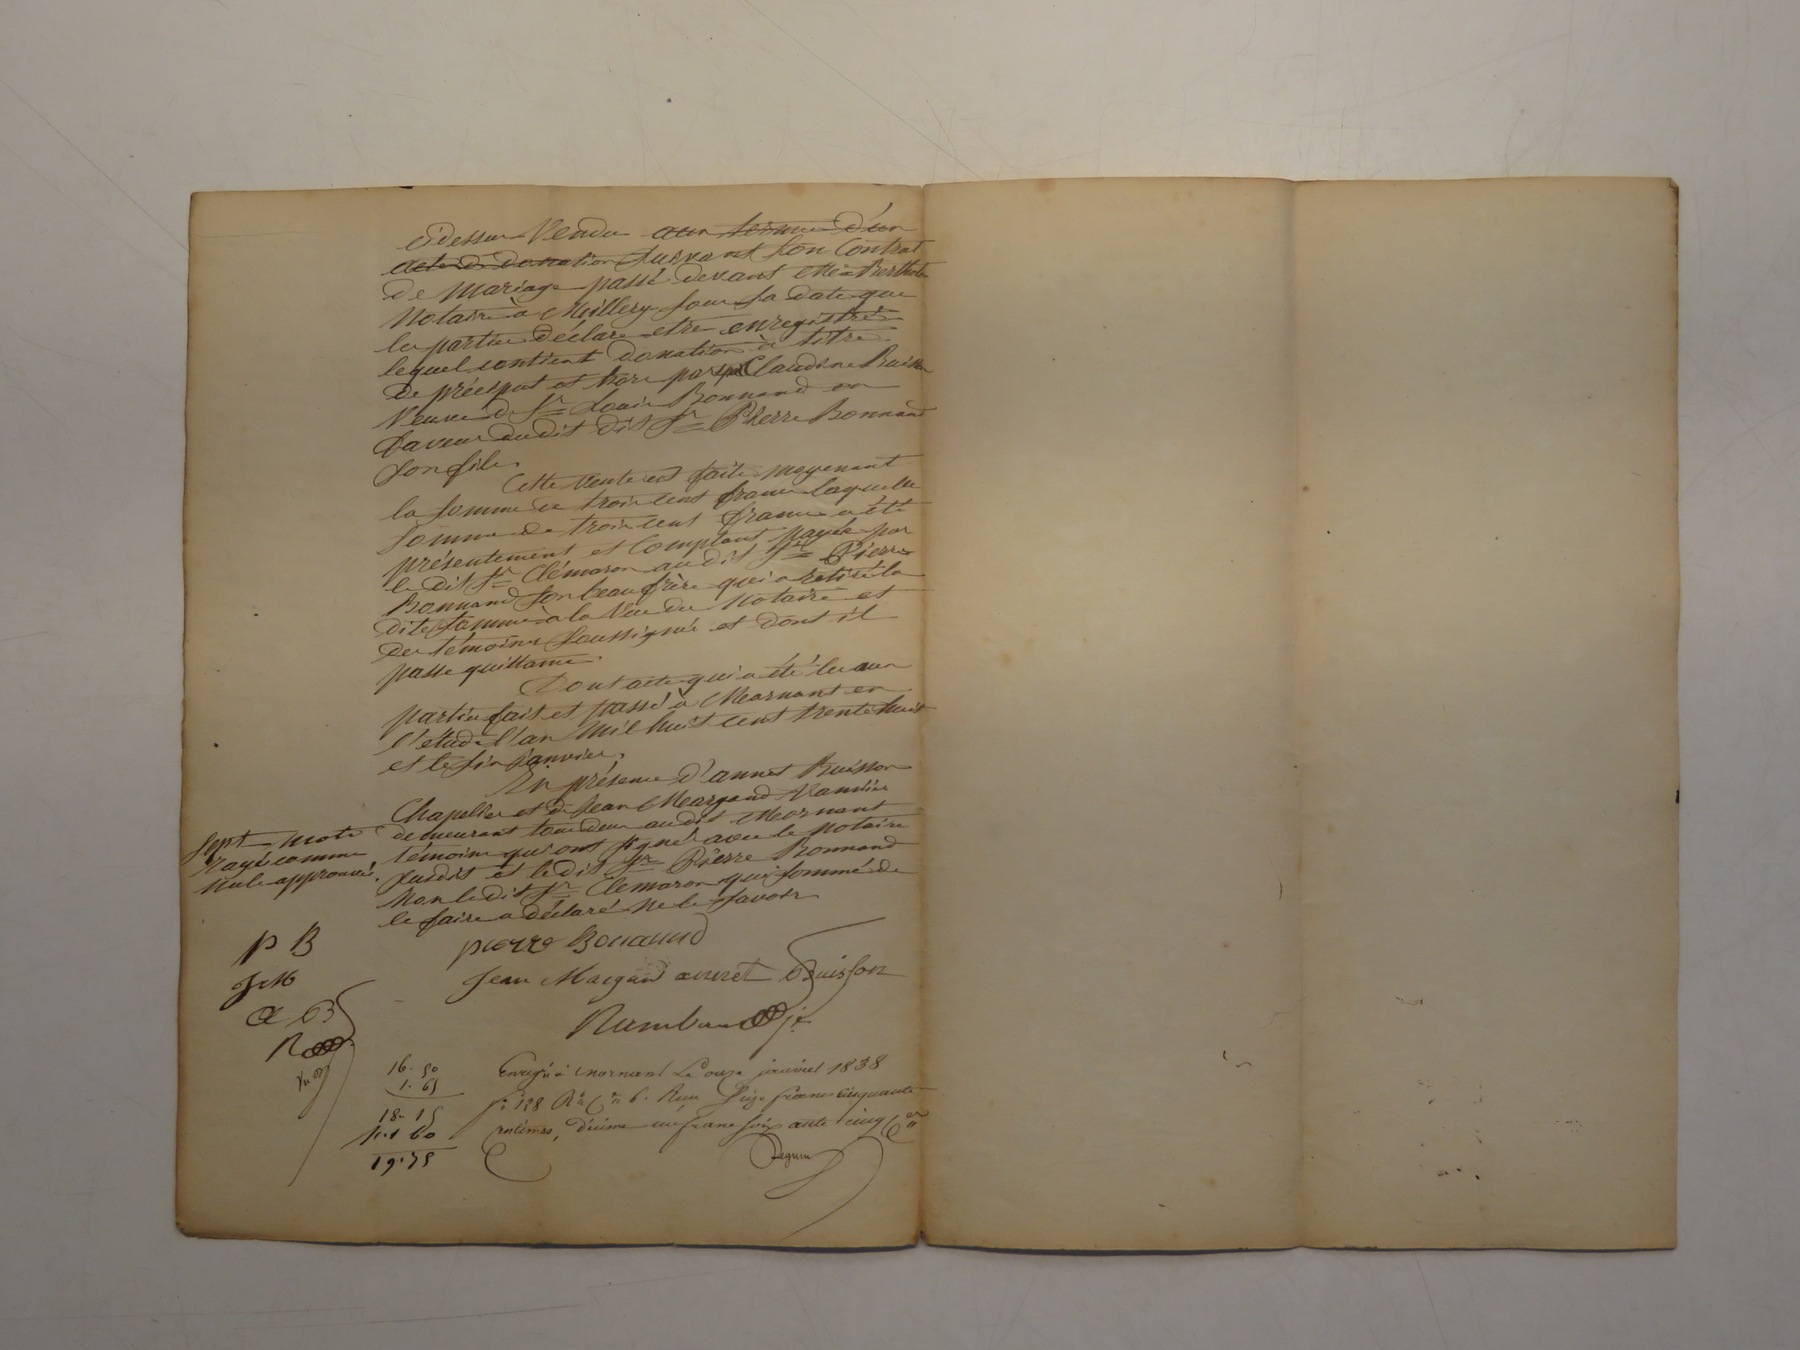 cidessus Vendu aux termes d'un
acte de donation suivant son Contrat
de mariage passé devant Me Berthelon
Notaire à Millery sous sa date que
les parties déclare etre enregistré
lequel contient donation à titre
de préciput et hors part Claudine Buisson
Veuve de Sr Louis Bonnand en
faveur dudit dit Sr Pierre Bonnand
son fils.
Cette vente est faite moyenant
la somme de trois cent francs laquelle
somme de trois cent francs a été
présentement et Comptant payée par
le dit Sr Clémaron au dit Sr Pierre
Bonnand son beau frère qui a retiré la
dite somme à la Vue du Notaire et
des témoins soussignés et dont il
passe quittance.
Dont acte qui a été lu aux
parties fait et passé à Mornant en
l'étude l'an mil huit cent trente huit
et le six Janvier.
En présence d'annet Buisson
Chapelier et de Jean Margand Vannier
demeurant tous deux audit Mornant
témoins qui ont signé avec le Notaire
susdit et le dit Sr Pierre Bonnand
Non le dit Sr Clemaron qui sommé de
le faire a déclaré ne le savoir
Sept mots
rayé comme
Nuls approuvé.
pierre Bonnand
Jean Margand annet Buisson
P B
J M
a B
R
16. 50
1. 65
18. 15
1. 60
19. 75
Enregtré à mornant Le onze janvier 1838
fo 128 Ro Ce 6. Reçu Seize francs cinquante
centimes, décime un franc soixante cinq Ces